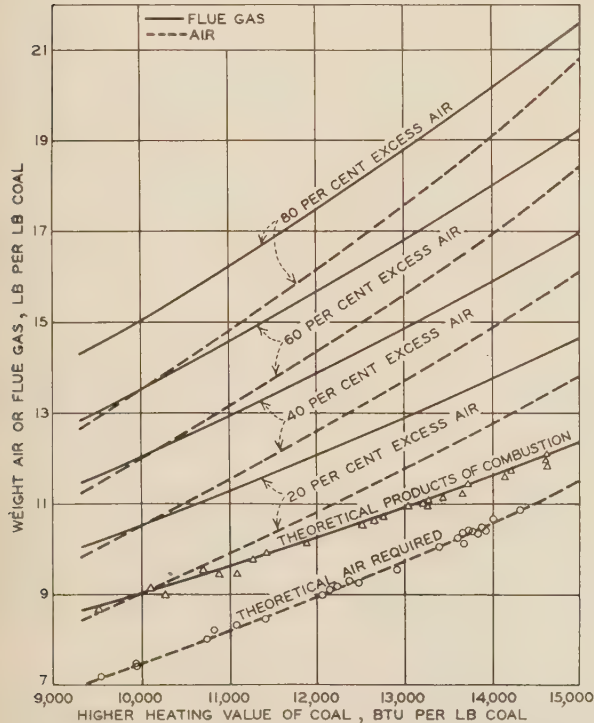 FLUE GAS
AIR
21
19
17
15
13
11
9
7
WEIGHT AIR OR FLUE GAS, LB PER LB COAL
80 PER CENT EXCESS AIR
60 PER CENT EXCESS AIR
40 PER CENT EXCESS AIR
20 PER CENT EXCESS AIR
THEORETICAL PRODUCTS OF COMBUSTION
THEORETICAL AIR REQUIRED
9,000 10,000 11,000 12,000 13,000 14,000 15,000
HIGHER HEATING VALUE OF COAL, BTU PER LB COAL